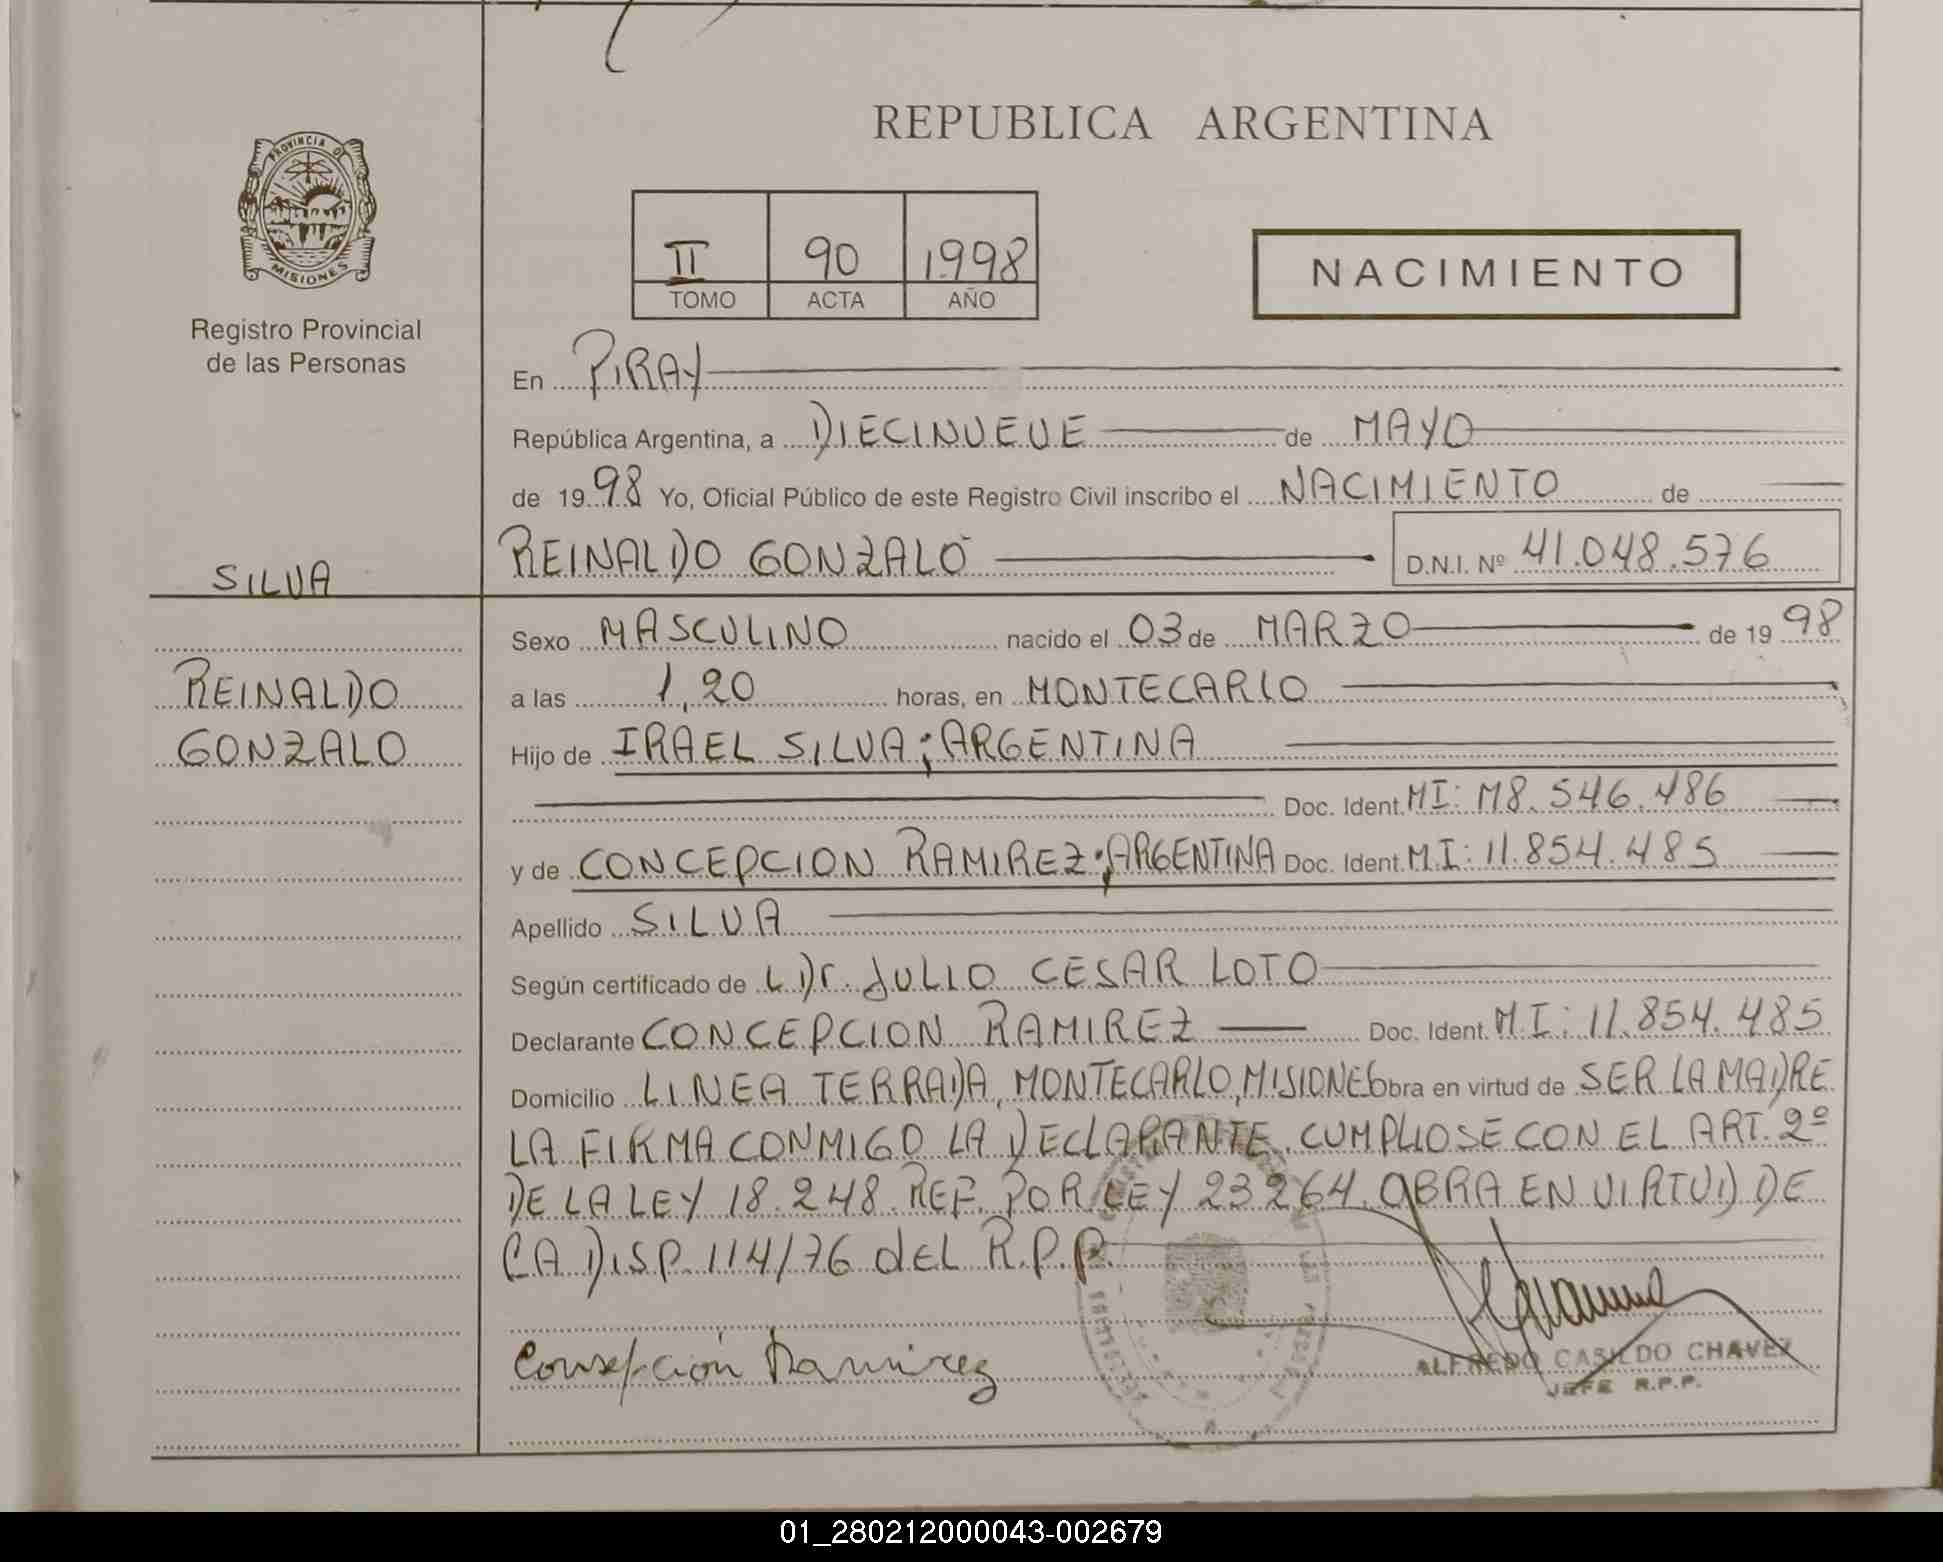 REPUBLICA ARGENTINA
PROVINCIA D
MISIONES
Registro Provincial
de las Personas
II 90 1998
TOMO ACTA AÑO
NACIMIENTO
En PIRAY
República Argentina, a DIECINUEUE de MAYO
de 1998 Yo, Oficial Público de este Registro Civil inscribo el NACIMIENTO de
REINALDO GONZALO D.N.I. Nº 41.048.576
SILVA
REINALDO
GONZALO
Sexo MASCULINO nacido el 03 de MARZO de 1998
a las 1,20 horas, en MONTECARLO
Hijo de IRAEL SILVA; ARGENTINA
Doc. Ident. MI: M8.546.486
y de CONCEPCION RAMIREZ; ARGENTINA Doc. Ident. M.I: 11.854.485
Apellido SILVA
Según certificado de L Dr. JULIO CESAR LOTO
Declarante CONCEPCION RAMIREZ Doc. Ident. M.I: 11.854.485
Domicilio LINEA TERRADA, MONTECARLO, MISIONES Obra en virtud de SER LA MADRE
LA FIRMA CONMIGO LA DECLARANTE. CUMPLIOSE CON EL ART. 2º
DE LA LEY 18.248 REF. POR LEY 23264. OBRA EN VIRTUD DE
LA DISP. 114/76 dEL R.P.P.
Consepción Ramirez
ALFREDO CASILDO CHAVEZ
JEFE R.P.P.
01_280212000043-002679